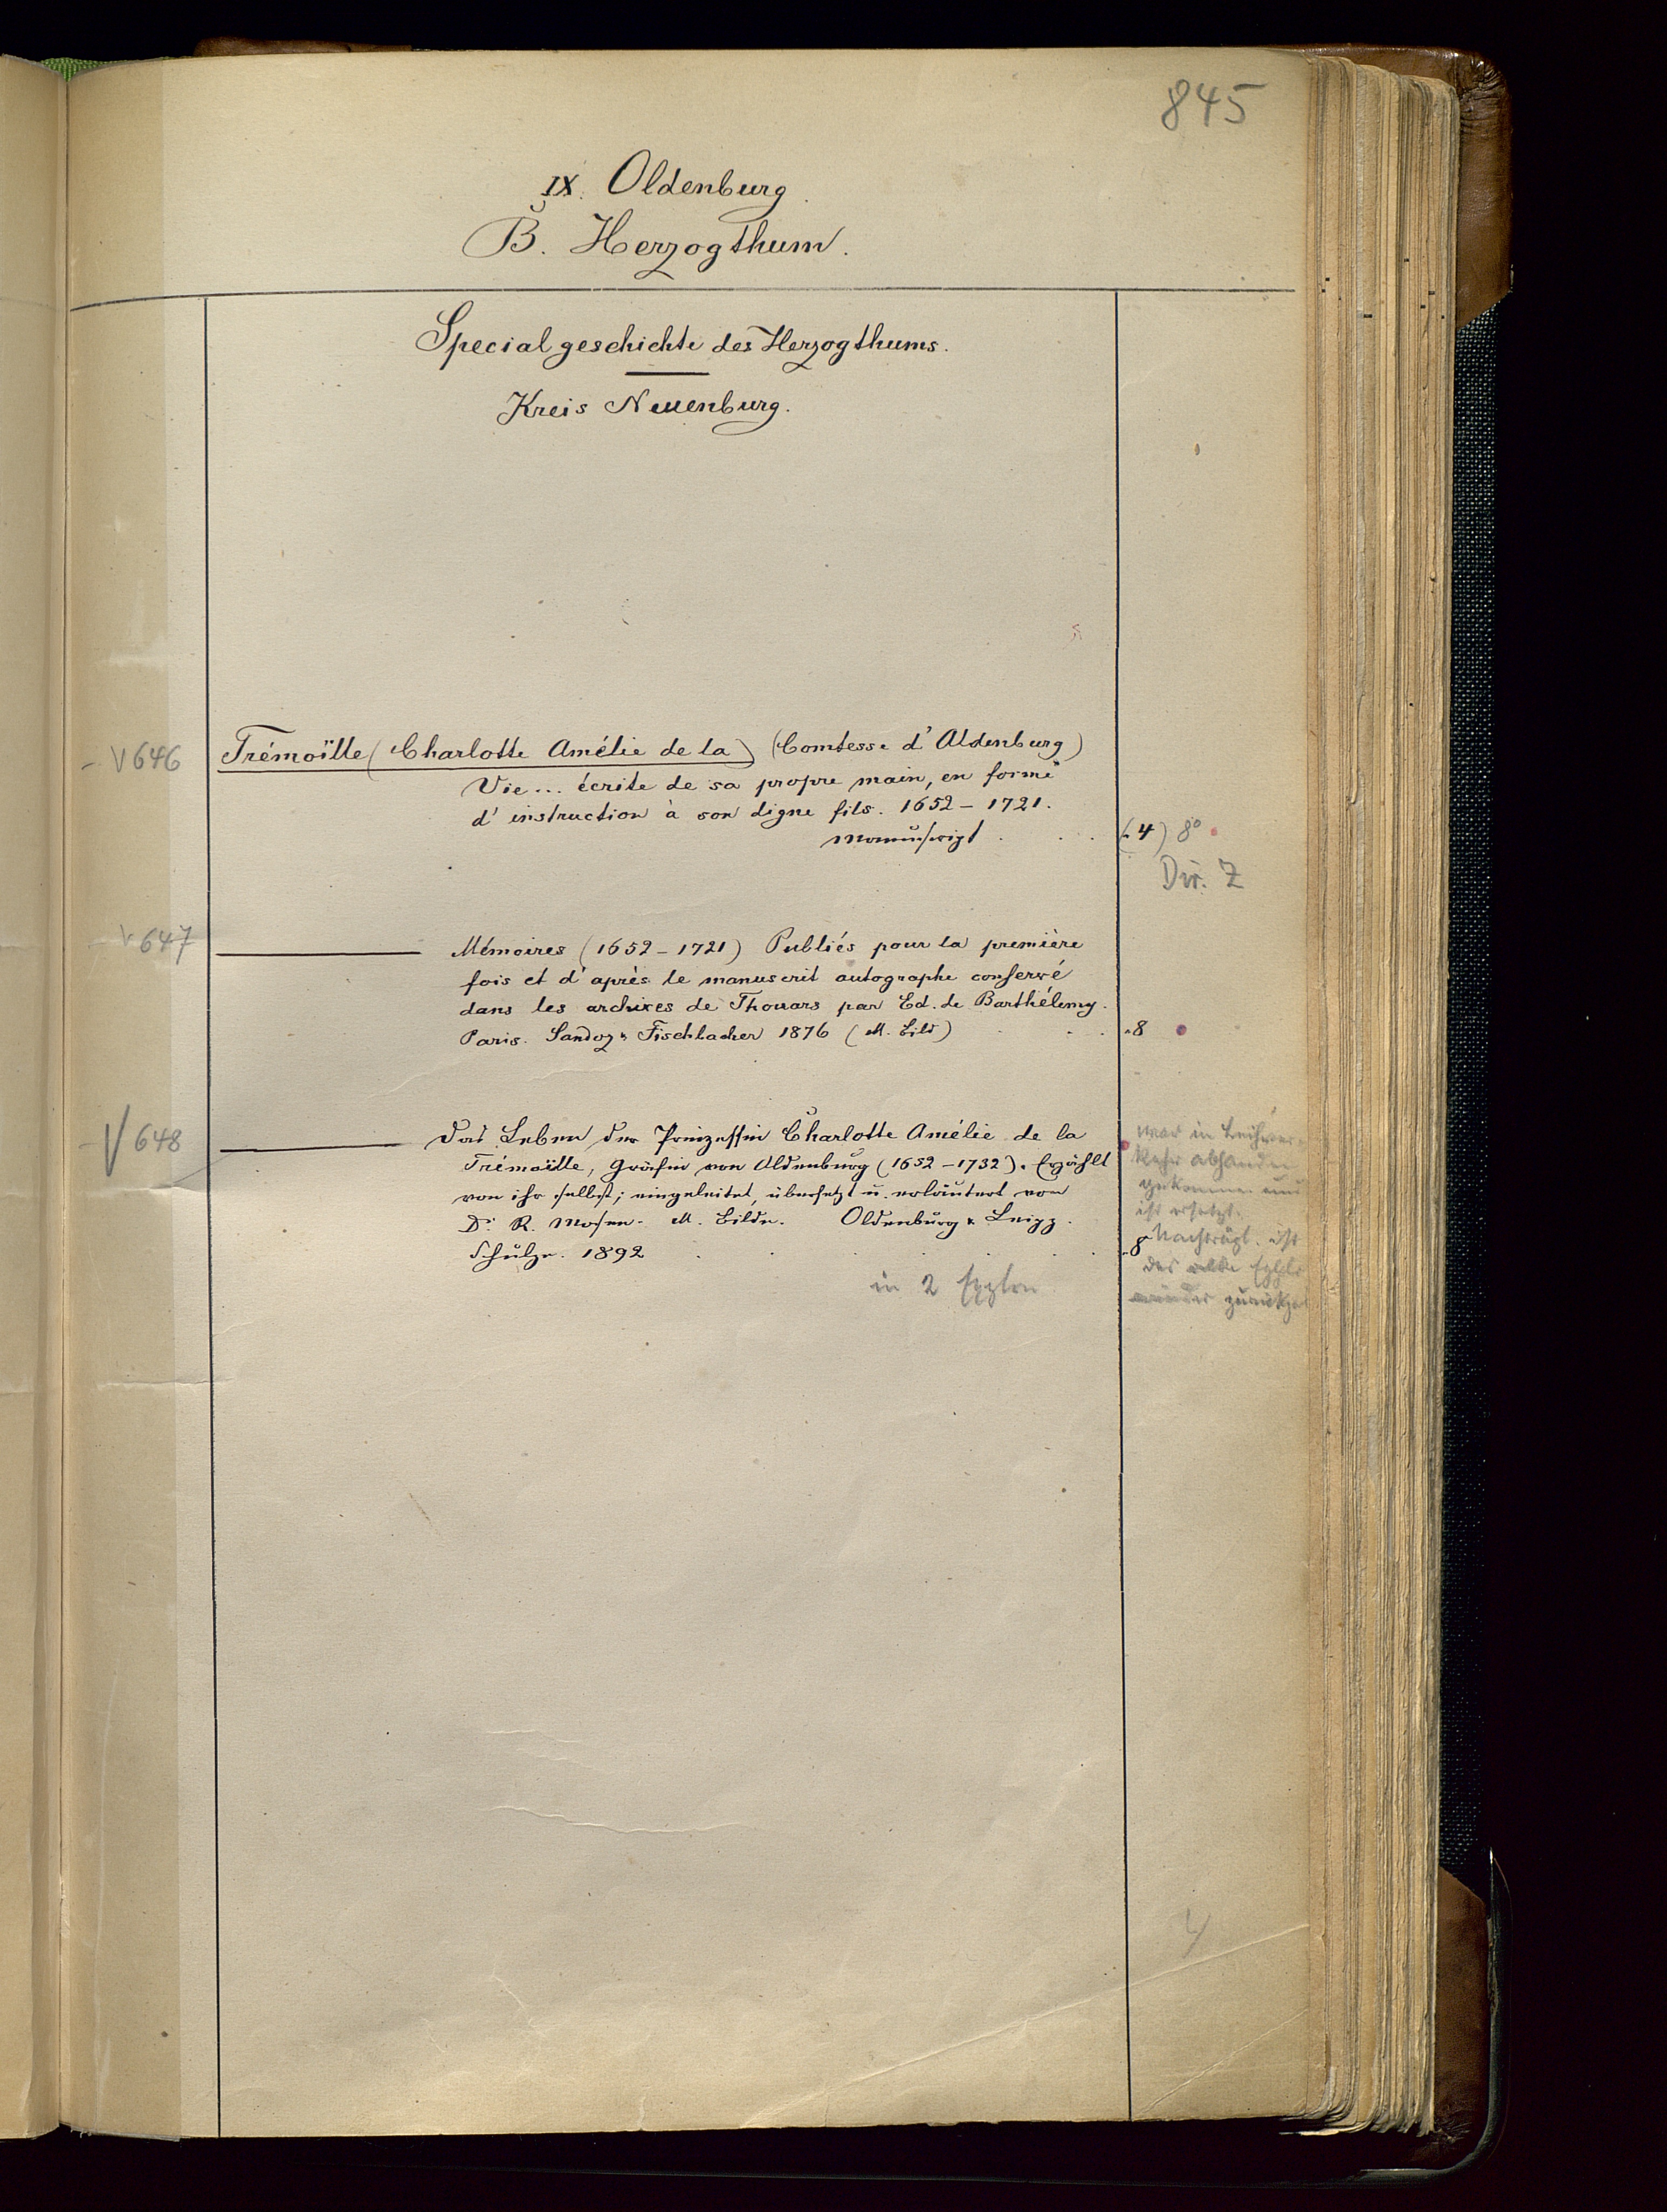 845
IX. Oldenburg.
B. Herzogthum.
Specialgeschichte des Herzogthums.
Kreis Neuenburg.
V 646 Trémoïlle (Charlotte Amélie de la) (Comtesse d'Aldenburg)
Vie... écrite de sa propre main, en forme
d'instruction à son digne fils. 1652–1721.
Manuskript . . . (4) 8°
Dir. Z
V 647 Mémoires (1652–1721) Publiés pour la première
fois et d'après le manuscrit autographe conservé
dans les archives de Thouars par Ed. de Barthélemy.
Paris. Sandoz & Fischbacher 1876 (M. Bild) . . . 8
V 648 Das Leben der Prinzessin Charlotte Amélie de la
Trémoïlle, Gräfin von Aldenburg (1652–1732). Erzählt
von ihr selbst; eingeleitet, übersetzt u. erläutert von
Dr. R. Mosen. M. Bilde. Oldenburg & Leipz.
Schulze. 1892 . . . 8
in 2 Explen
war in Leihver-
kehr abhanden
gekommen und
ist ersetzt.
Nachträgl. ist
das alte Explr
wieder zurückge
4